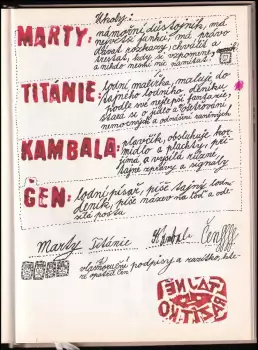 Úkoly:
MARTY: námořní důstojník, má
nejvyšší funkci, má právo
dávat rozkazy, chválit a
trestat, když si vzpomene
a nikdo nesmí nic namítat!
TITÁNIE: lodní malířka, maluje do
tajného lodního deníku
podle své nejlepší fantazie,
stará se o jídlo a ošetřování
nemocných a raněných
KAMBALA: plavčík, obsluhuje kor-
midlo a plachty, při-
jímá a vysílá
tajné zprávy a signály
ČEN: lodní písař, píše tajný lodní
deník, píše název na loď a ode-
sílá poštu
Marty Titánie Kambala Čen
vlastnoruční podpisy a razítko, kde
TAJNÉ
RAZÍTKO